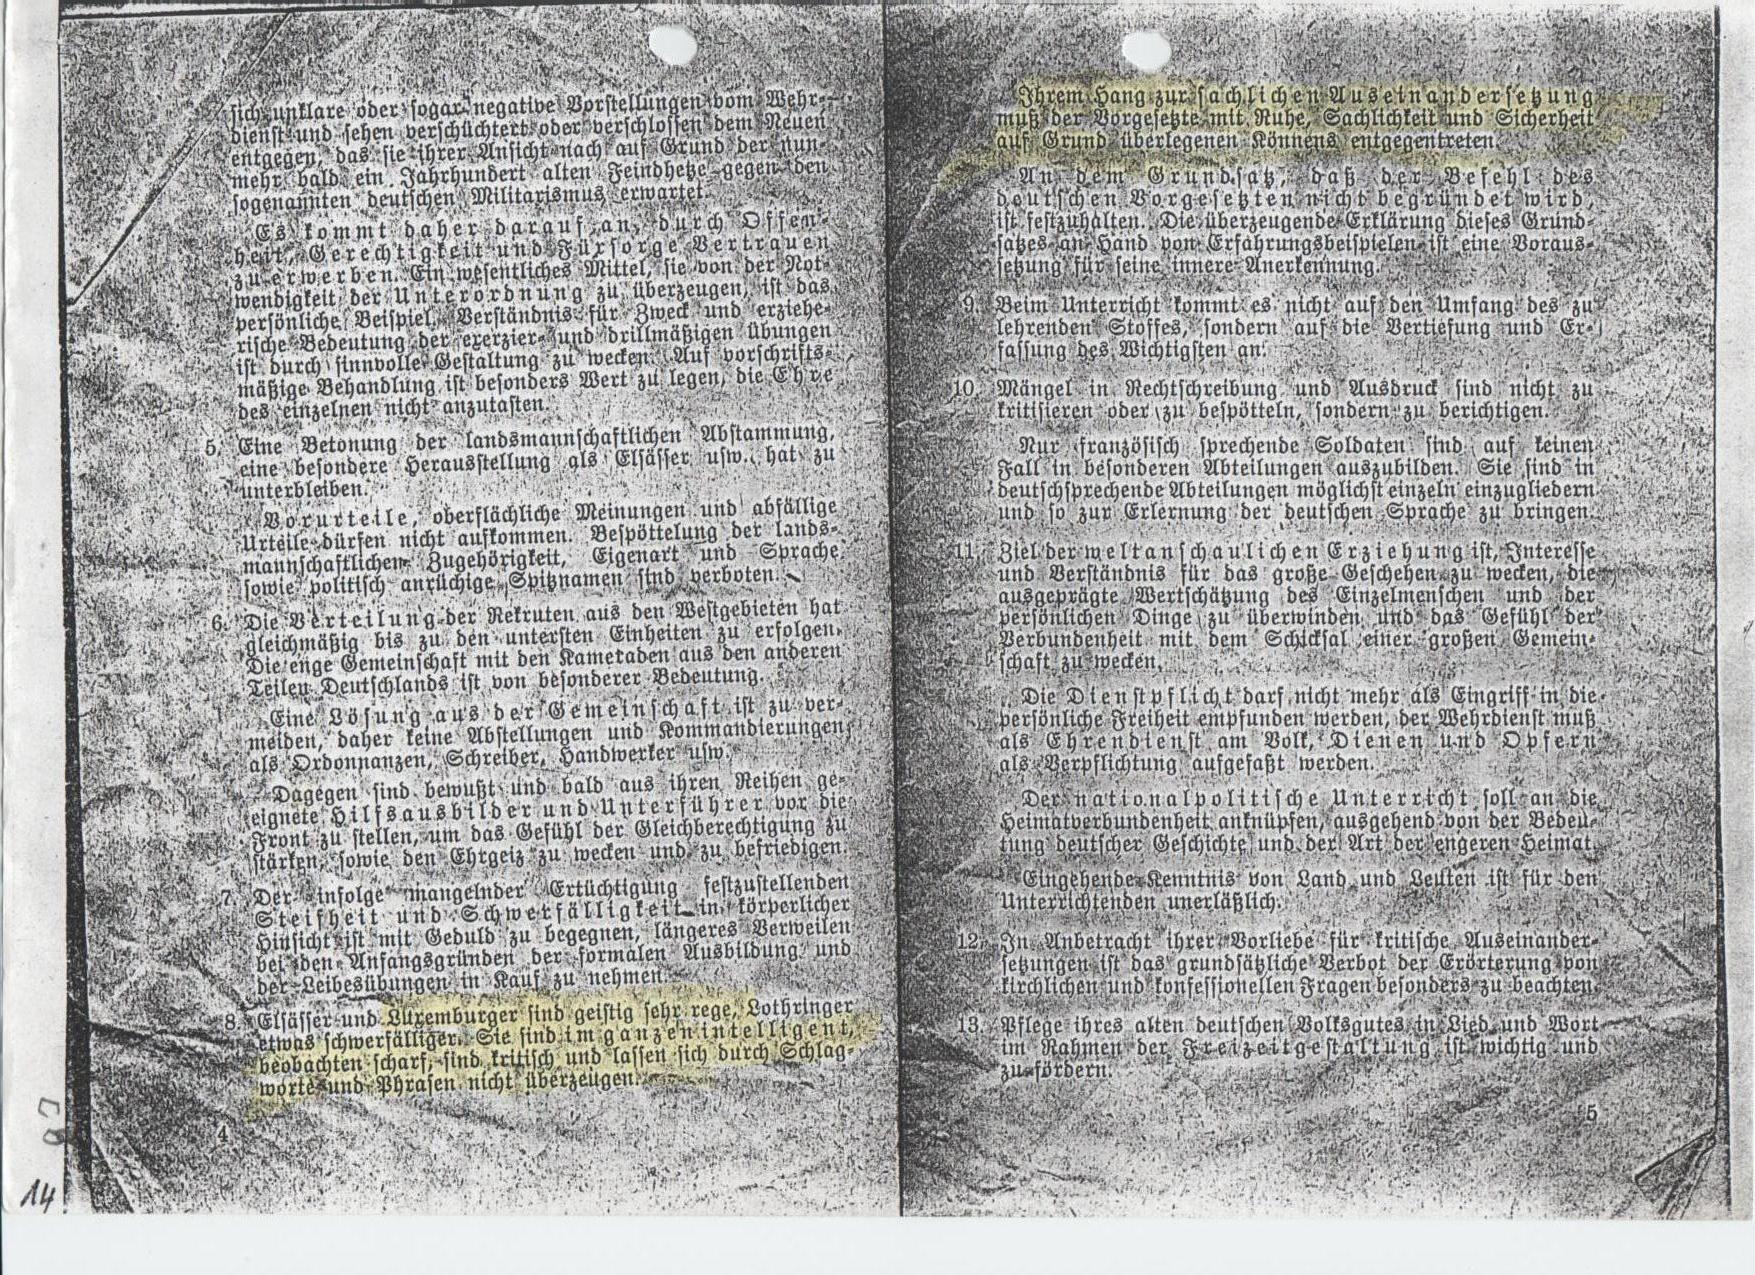 sich unklare oder sogar negative Vorstellungen vom Wehr-
dienst und sehen verschüchtert oder verschlossen dem Neuen
entgegen, das sie ihrer Ansicht nach auf Grund der nun-
mehr bald ein Jahrhundert alten Feindhetze gegen den
sogenannten deutschen Militarismus erwartet.
Es kommt daher darauf an, durch Offen-
heit, Gerechtigkeit und Fürsorge Vertrauen
zu erwerben. Ein wesentliches Mittel, sie von der Not-
wendigkeit der Unterordnung zu überzeugen, ist das
persönliche Beispiel. Verständnis für Zweck und erziehe-
rische Bedeutung der exerzier- und drillmäßigen Übungen
ist durch sinnvolle Gestaltung zu wecken. Auf vorschrifts-
mäßige Behandlung ist besonders Wert zu legen, die Ehre
des einzelnen nicht anzutasten.
5. Eine Betonung der landsmannschaftlichen Abstammung,
eine besondere Herausstellung als Elsässer usw. hat zu
unterbleiben.
Vorurteile, oberflächliche Meinungen und abfällige
Urteile dürfen nicht aufkommen. Bespöttelung der lands-
mannschaftlichen Zugehörigkeit, Eigenart und Sprache
sowie politisch anrüchige Spitznamen sind verboten.
6. Die Verteilung der Rekruten aus den Westgebieten hat
gleichmäßig bis zu den untersten Einheiten zu erfolgen.
Die enge Gemeinschaft mit den Kameraden aus den anderen
Teilen Deutschlands ist von besonderer Bedeutung.
Eine Lösung aus der Gemeinschaft ist zu ver-
meiden, daher keine Abstellungen und Kommandierungen
als Ordonnanzen, Schreiber, Handwerker usw.
Dagegen sind bewußt und bald aus ihren Reihen ge-
eignete Hilfsausbilder und Unterführer vor die
Front zu stellen, um das Gefühl der Gleichberechtigung zu
stärken, sowie den Ehrgeiz zu wecken und zu befriedigen.
7. Der infolge mangelnder Ertüchtigung festzustellenden
Steifheit und Schwerfälligkeit in körperlicher
Hinsicht ist mit Geduld zu begegnen, längeres Verweilen
bei den Anfangsgründen der formalen Ausbildung und
der Leibesübungen in Kauf zu nehmen.
8. Elsässer und Luxemburger sind geistig sehr rege, Lothringer
etwas schwerfälliger. Sie sind im ganzen intelligent,
beobachten scharf, sind kritisch und lassen sich durch Schlag-
worte und Phrasen nicht überzeugen.
4
14
Ihrem Hang zur sachlichen Auseinandersetzung
muß der Vorgesetzte mit Ruhe, Sachlichkeit und Sicherheit
auf Grund überlegenen Könnens entgegentreten.
An dem Grundsatz, daß der Befehl des
deutschen Vorgesetzten nicht begründet wird,
ist festzuhalten. Die überzeugende Erklärung dieses Grund-
satzes an Hand von Erfahrungsbeispielen ist eine Voraus-
setzung für seine innere Anerkennung.
9. Beim Unterricht kommt es nicht auf den Umfang des zu
lehrenden Stoffes, sondern auf die Vertiefung und Er-
fassung des Wichtigsten an.
10. Mängel in Rechtschreibung und Ausdruck sind nicht zu
kritisieren oder zu bespötteln, sondern zu berichtigen.
Nur französisch sprechende Soldaten sind auf keinen
Fall in besonderen Abteilungen auszubilden. Sie sind in
deutschsprechende Abteilungen möglichst einzeln einzugliedern
und so zur Erlernung der deutschen Sprache zu bringen.
11. Ziel der weltanschaulichen Erziehung ist, Interesse
und Verständnis für das große Geschehen zu wecken, die
ausgeprägte Wertschätzung des Einzelmenschen und der
persönlichen Dinge zu überwinden und das Gefühl der
Verbundenheit mit dem Schicksal einer großen Gemein-
schaft zu wecken.
Die Dienstpflicht darf nicht mehr als Eingriff in die
persönliche Freiheit empfunden werden, der Wehrdienst muß
als Ehrendienst am Volk, Dienen und Opfern
als Verpflichtung aufgefaßt werden.
Der nationalpolitische Unterricht soll an die
Heimatverbundenheit anknüpfen, ausgehend von der Bedeu-
tung deutscher Geschichte und der Art der engeren Heimat.
Eingehende Kenntnis von Land und Leuten ist für den
Unterrichtenden unerläßlich.
12. In Anbetracht ihrer Vorliebe für kritische Auseinander-
setzungen ist das grundsätzliche Verbot der Erörterung von
kirchlichen und konfessionellen Fragen besonders zu beachten.
13. Pflege ihres alten deutschen Volksgutes in Lied und Wort
im Rahmen der Freizeitgestaltung ist wichtig und
zu fördern.
5